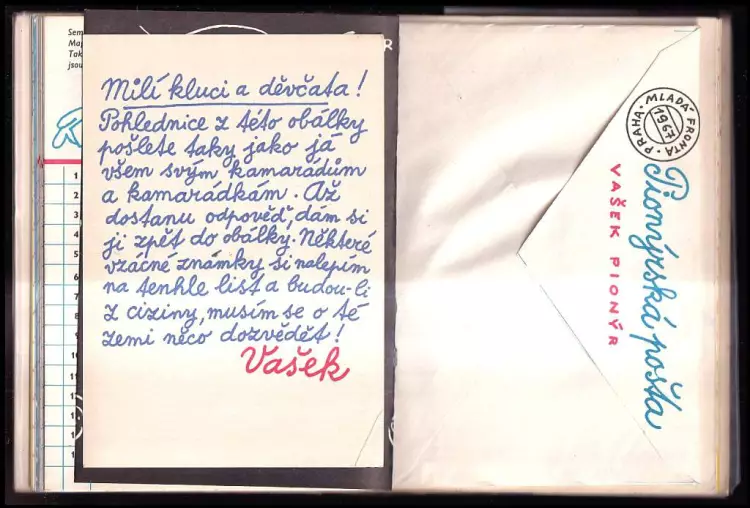 Sem
Maj
Tak
jsou
Milí kluci a děvčata!
Pohlednice z této obálky
pošlete taky jako já
všem svým kamarádům
a kamarádkám. Až
dostanu odpověď, dám si
ji zpět do obálky. Některé
vzácné známky si nalepím
na tenhle list a budou-li
z ciziny, musím se o té
zemi něco dozvědět!
Vašek
1
2
3
4
5
6
7
8
9
10
11
PRAHA · MLADÁ FRONTA ·
1967
Pionýrská pošta
VAŠEK PIONÝR